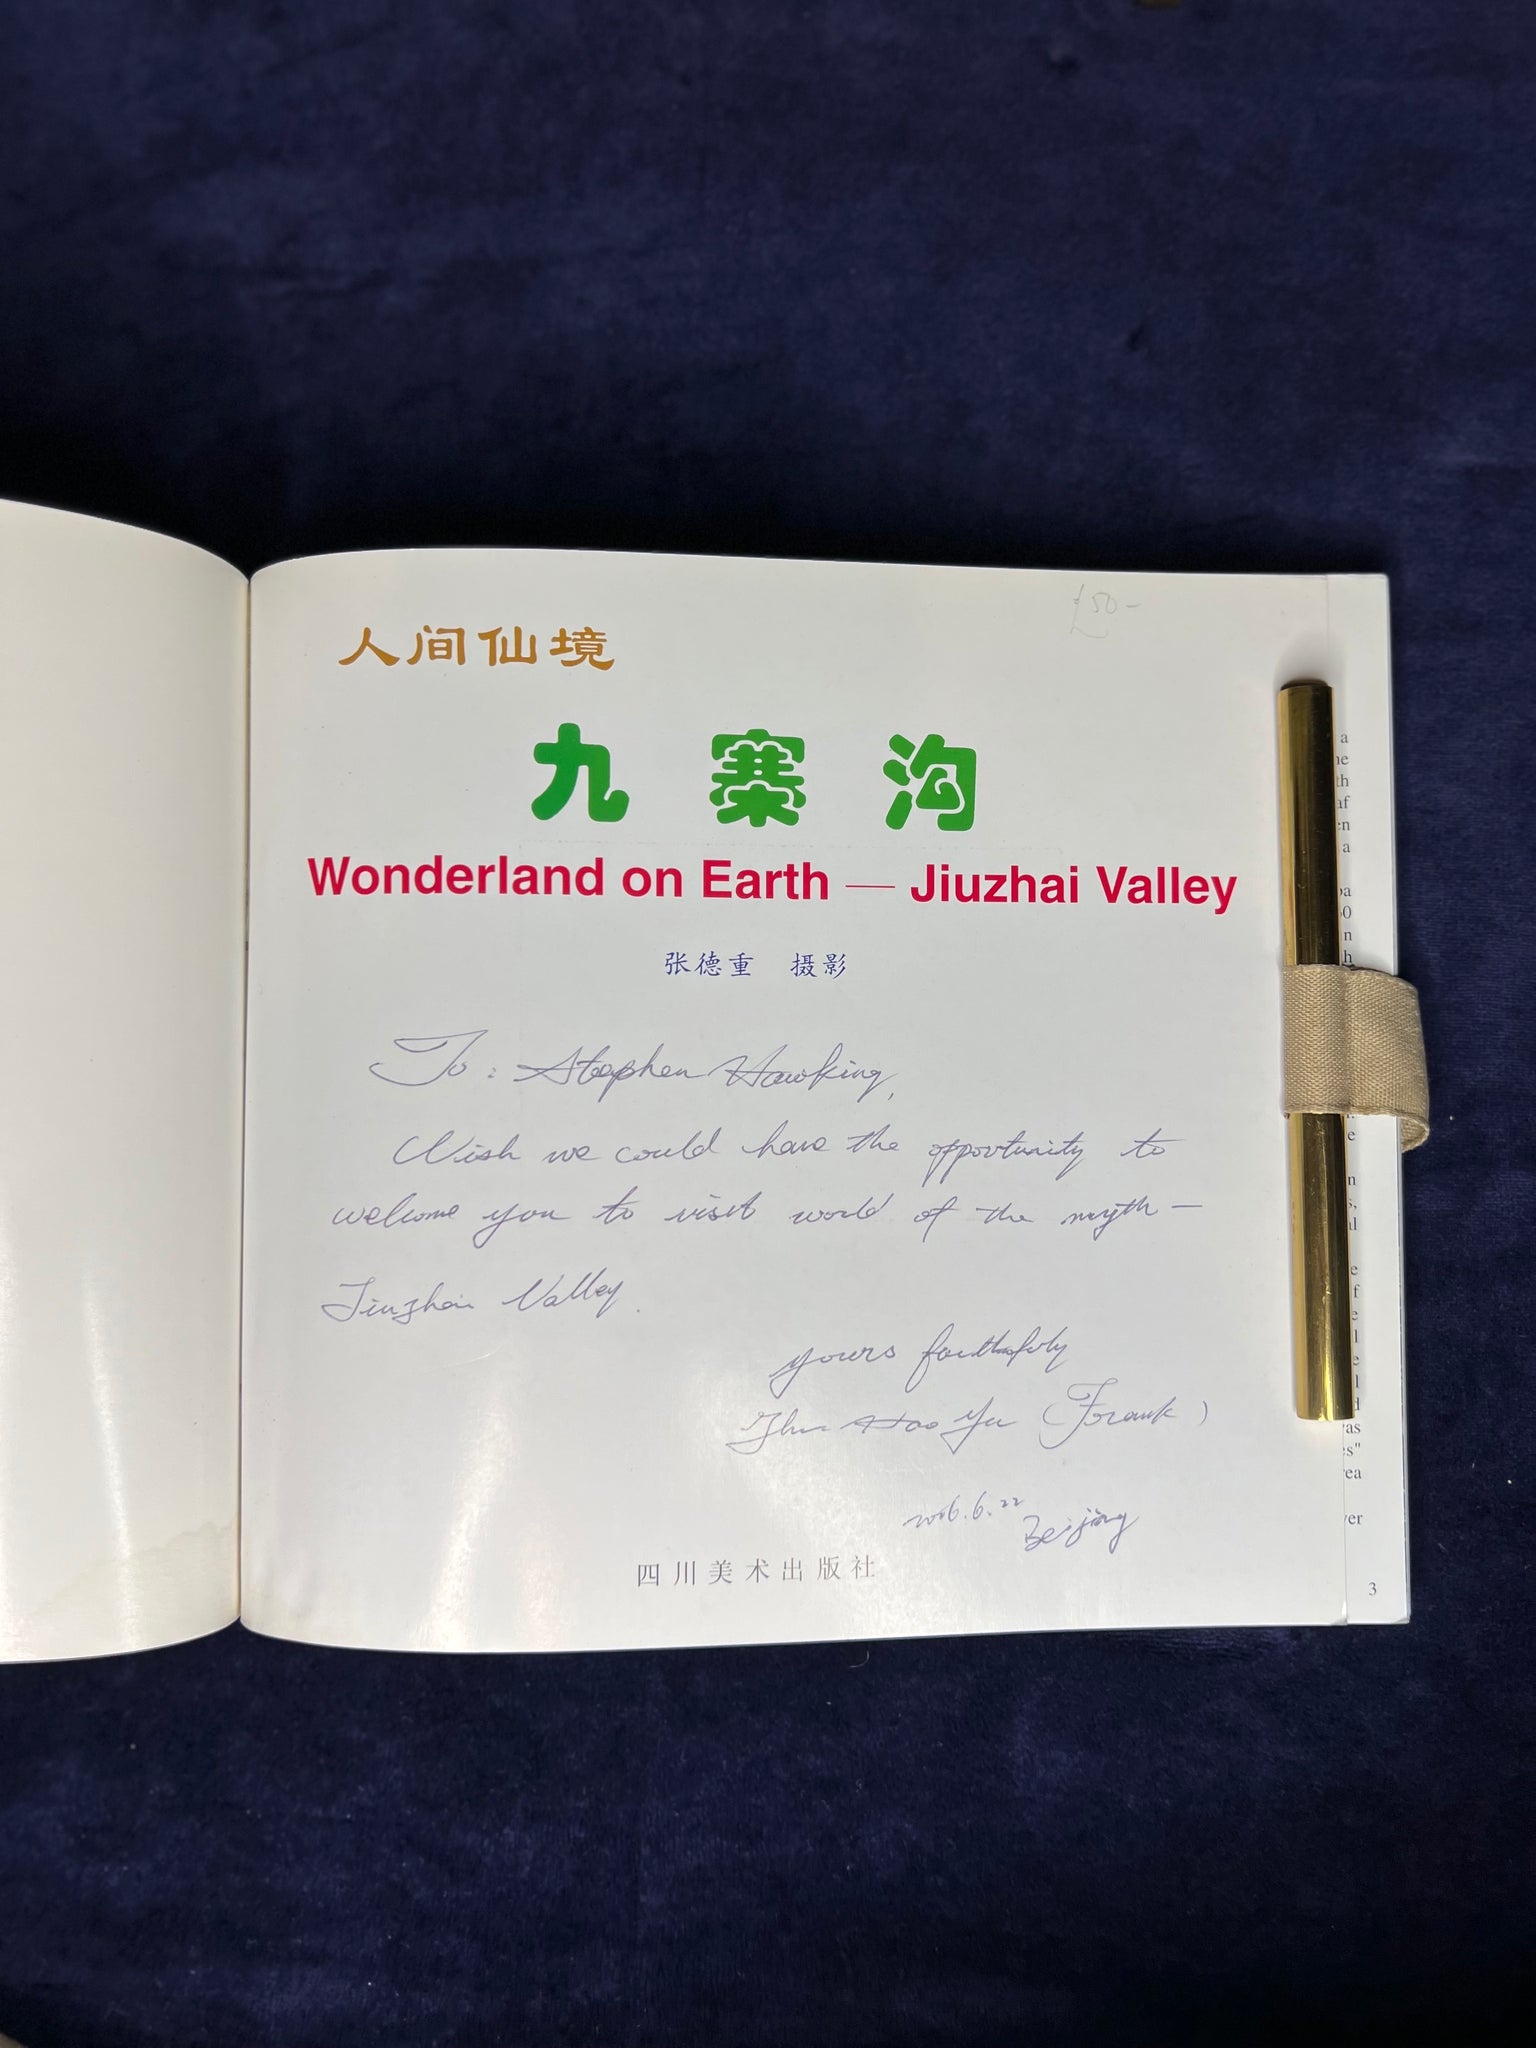 £50-
人间仙境
九寨沟
Wonderland on Earth — Jiuzhai Valley
张德重 摄影
To: Stephen Hawking,
Wish we could have the opportunity to
welcome you to visit world of the myth —
Jiuzhai Valley.
yours faithfuly
Zhu Hao Yu (Frank)
2006.6.22
Beijing
四川美术出版社
a
he
th
af
en
a
n
e
n
e
f
e
l
e
l
d
as
es"
rea
ver
3